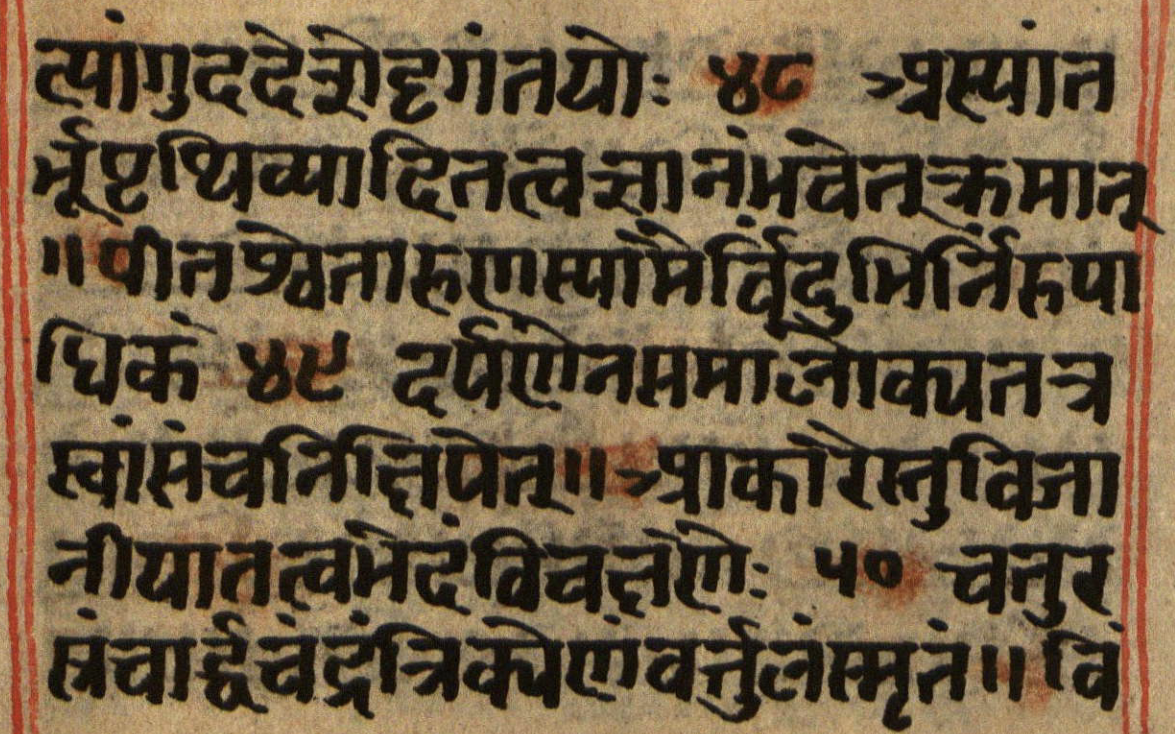 त्पांगुददेशेदृगंतयोः ४८ अस्यांत
र्भूपृथिव्यादितत्वज्ञानंभवेत्क्रमात्
॥पीतश्वेतारुणस्यामैर्विंदुभिर्निरुपा
धिकं ४९ दर्पणेनसमालोक्यतत्र
स्वांसंचनिक्षिपेत्॥आकारैस्तुविजा
नीयातत्वभेदंविचक्षणेः ५० चतुर
स्रंचार्द्धचंद्रंत्रिकोणंवर्त्तुलंस्मृतं॥विं